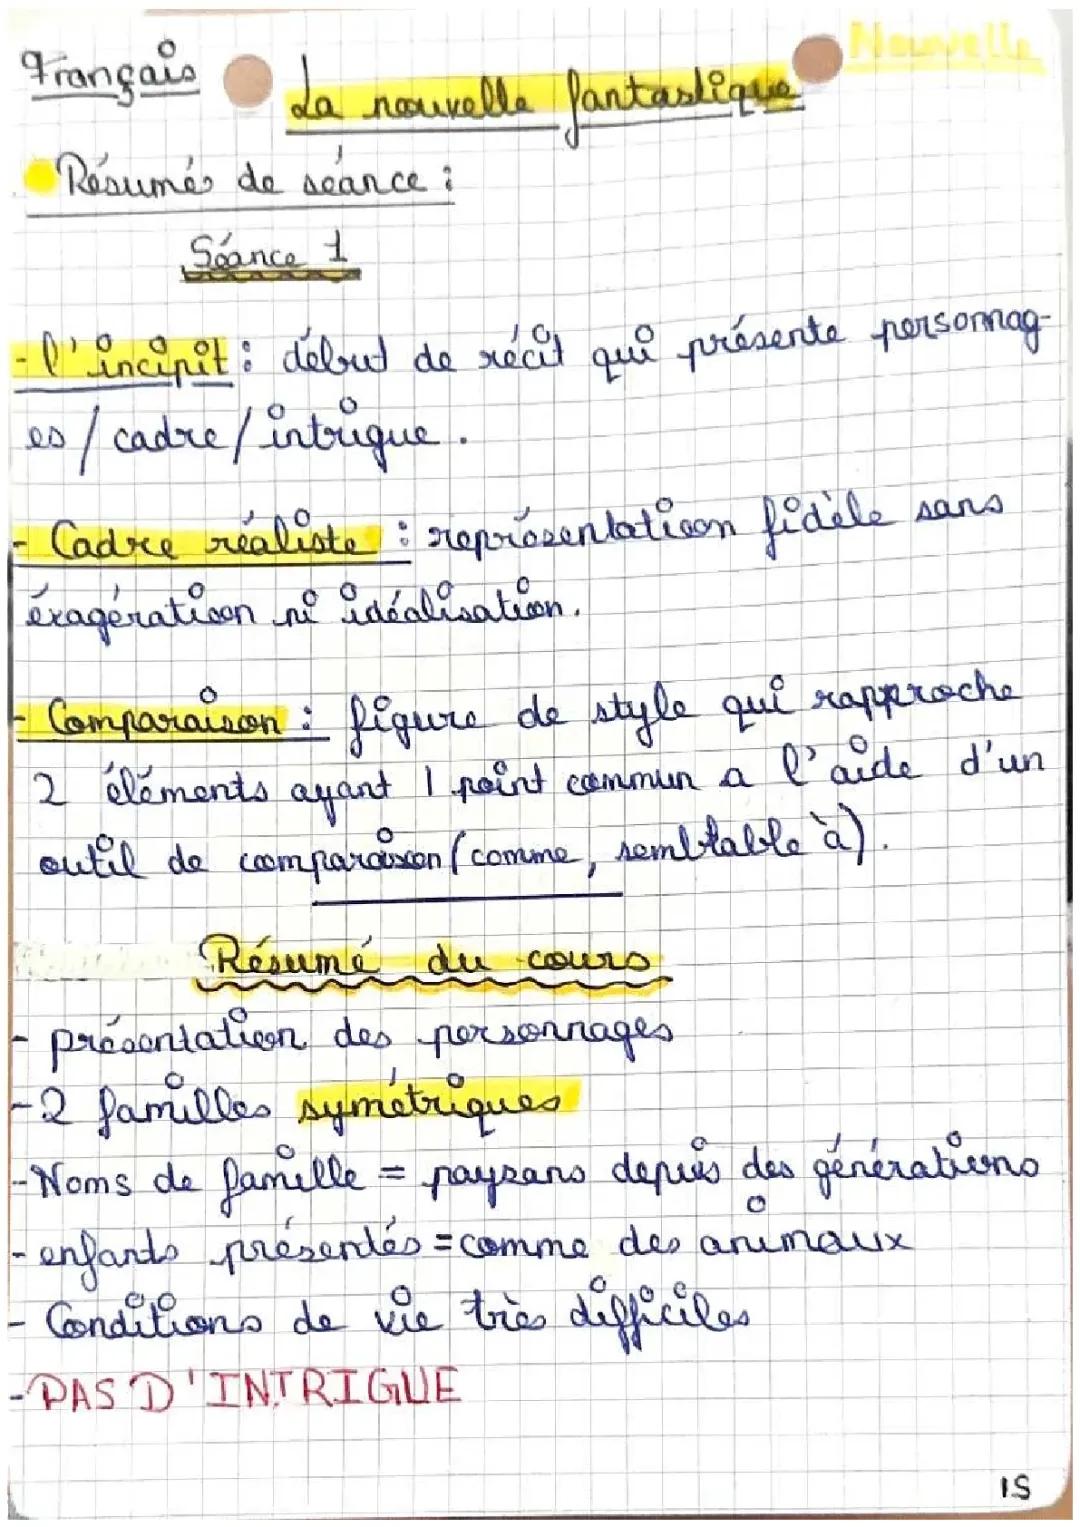 Français
Nouvelle
La nouvelle fantastique
Résumés de séance :
Séance 1
- l'incipit : début de récit qui présente personnag-
es / cadre / intrigue.
- Cadre réaliste : représentation fidèle sans
éxagération ni idéalisation.
- Comparaison : figure de style qui rapproche
2 éléments ayant 1 point commun a l'aide d'un
outil de comparaison (comme, semblable à).
Résumé du cours
- présentation des personnages
- 2 familles symétriques
- Noms de famille = paysans depuis des générations
- enfants présentés = comme des animaux
- Conditions de vie très difficiles
- PAS D'INTRIGUE
IS